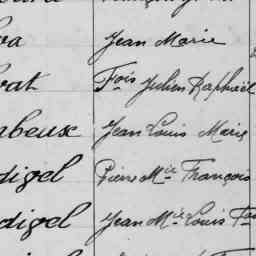 Jean Marie
Fois Julien Raphaël
Jean Louis Marie
digel Pierre Mie François
digel Jean Mie Louis Fois